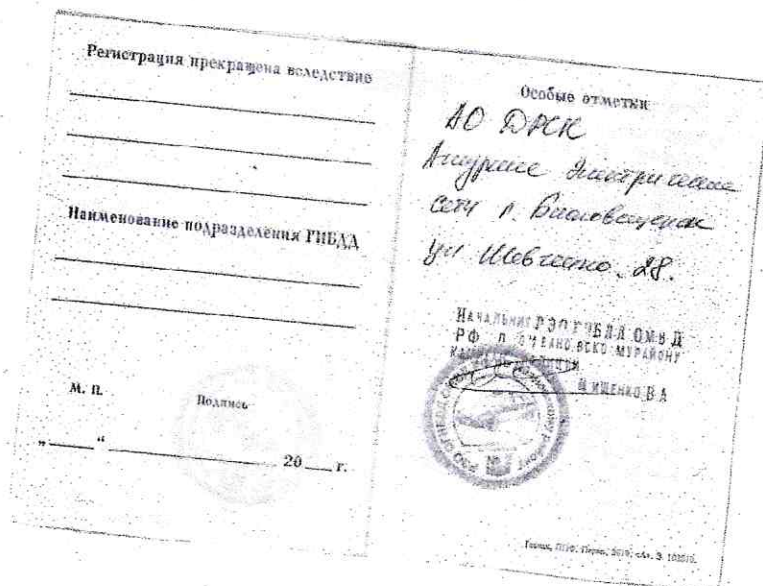 Регистрация прекращена вследствие
Наименование подразделения ГИБДД
М. П.
Подпись
„ “ 20 г.
Особые отметки
АО ДРСК
Амурские электрические
сети г. Благовещенск
ул Шевченко, 28.
НАЧАЛЬНИК РЭО ГИБДД ОМВД
РФ П РАЙОНУ
КАПИТАН ПОЛИЦИИ
МИЩЕНКО В А
Гознак, ППФ, Пермь, 2010, «А».